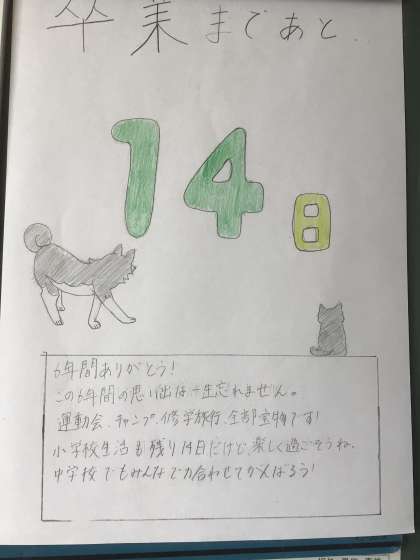 卒業まであと...
14日
6年間ありがとう!
この6年間の思い出は一生忘れません。
運動会、キャンプ、修学旅行、全部宝物です!
小学校生活も残り14日だけど、楽しく過ごそうね。
中学校でもみんなで力合わせてがんばろう!